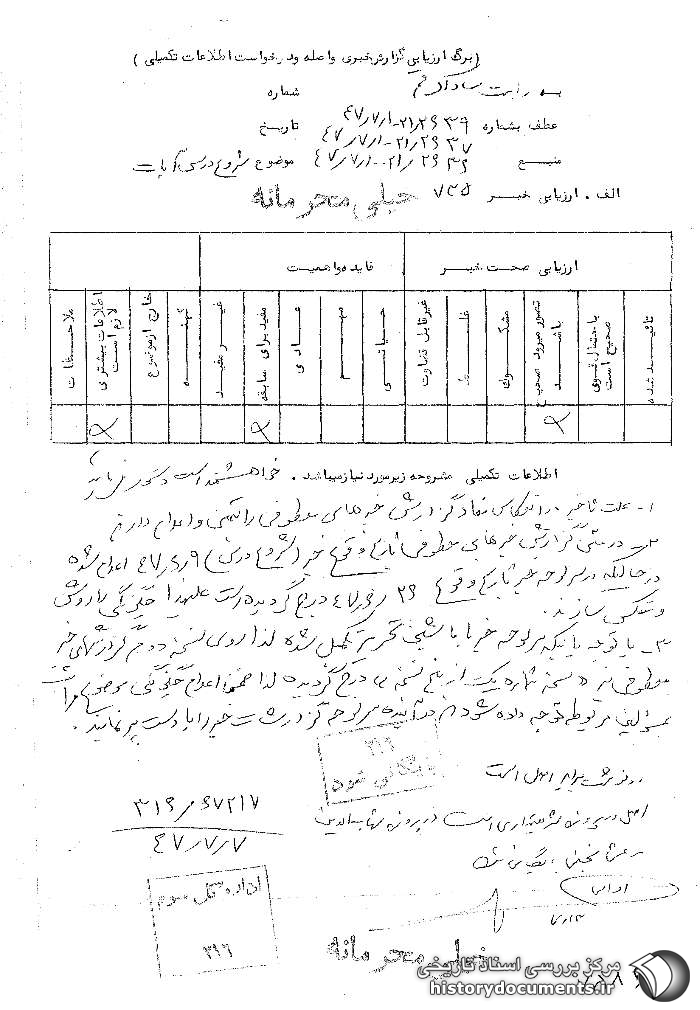 (برگ ارزیابی گزارش خبری واصله و درخواست اطلاعات تکمیلی)
به ریاست ساواک قم
شماره
عطف بشماره ۲۱/۲۹۳۶ - ۴۷/۷/۱
تاریخ ۲۱/۲۹۳۷ - ۴۷/۷/۱
منبع
موضوع شروع درس آیات
الف . ارزیابی خبر ۷۳۵
خیلی محرمانه
ارزیابی صحت خبر
فایده و اهمیت
تائید شده
با احتمال قوی صحیح است
تصور میرود صحیح باشد
مشکوک
غلط
غیرقابل قضاوت
حیاتی
مهم
عادی
مفید برای سابقه
غیر مفید
کهنه
خارج از موضوع
اطلاعات بیشتری لازم است
ملاحظات
اطلاعات تکمیلی مشروحه زیر مورد نیاز میباشد . خواهشمند است دستور فرمائید
۱- علت تاخیر در انعکاس مفاد گزارش خبرهای معطوفی را تعیین و اعلام دارند
۲- در متن گزارش خبرهای معطوفی تاریخ وقوع خبر (شروع درس) ۴۷/۶/۹ اعلام شده
در حالیکه در سرلوحه خبر تاریخ وقوع ۲۹ ۴۷ درج گردیده است علیهذا چگونگی را روشن
و منعکس سازند
۳- با توجه باینکه سرلوحه خبر با ماشین تحریر تکمیل شده لذا روی نسخه دوم گزارشهای خبر
معطوفی نیز نسخه شماره یک از پنج نسخه درج گردیده لذا ضمن اعلام چگونگی موضوع
مسئولین مربوطه توجه داده شود در آینده سرلوحه گزارشات خبر را با دست پر نمایند .
۳۱۶
بایگانی شود
رونوشت برابر اصل است
اصل در پرونده است در پرونده شهاب الدین
مرعشی نجفی بایگانی شد
۳۱۶/۶۷۲۱۷
۴۷/۷/۷
اداره کل سوم
۳۱۶
خیلی محرمانه
مرکز بررسی اسناد تاریخی
historydocuments.ir